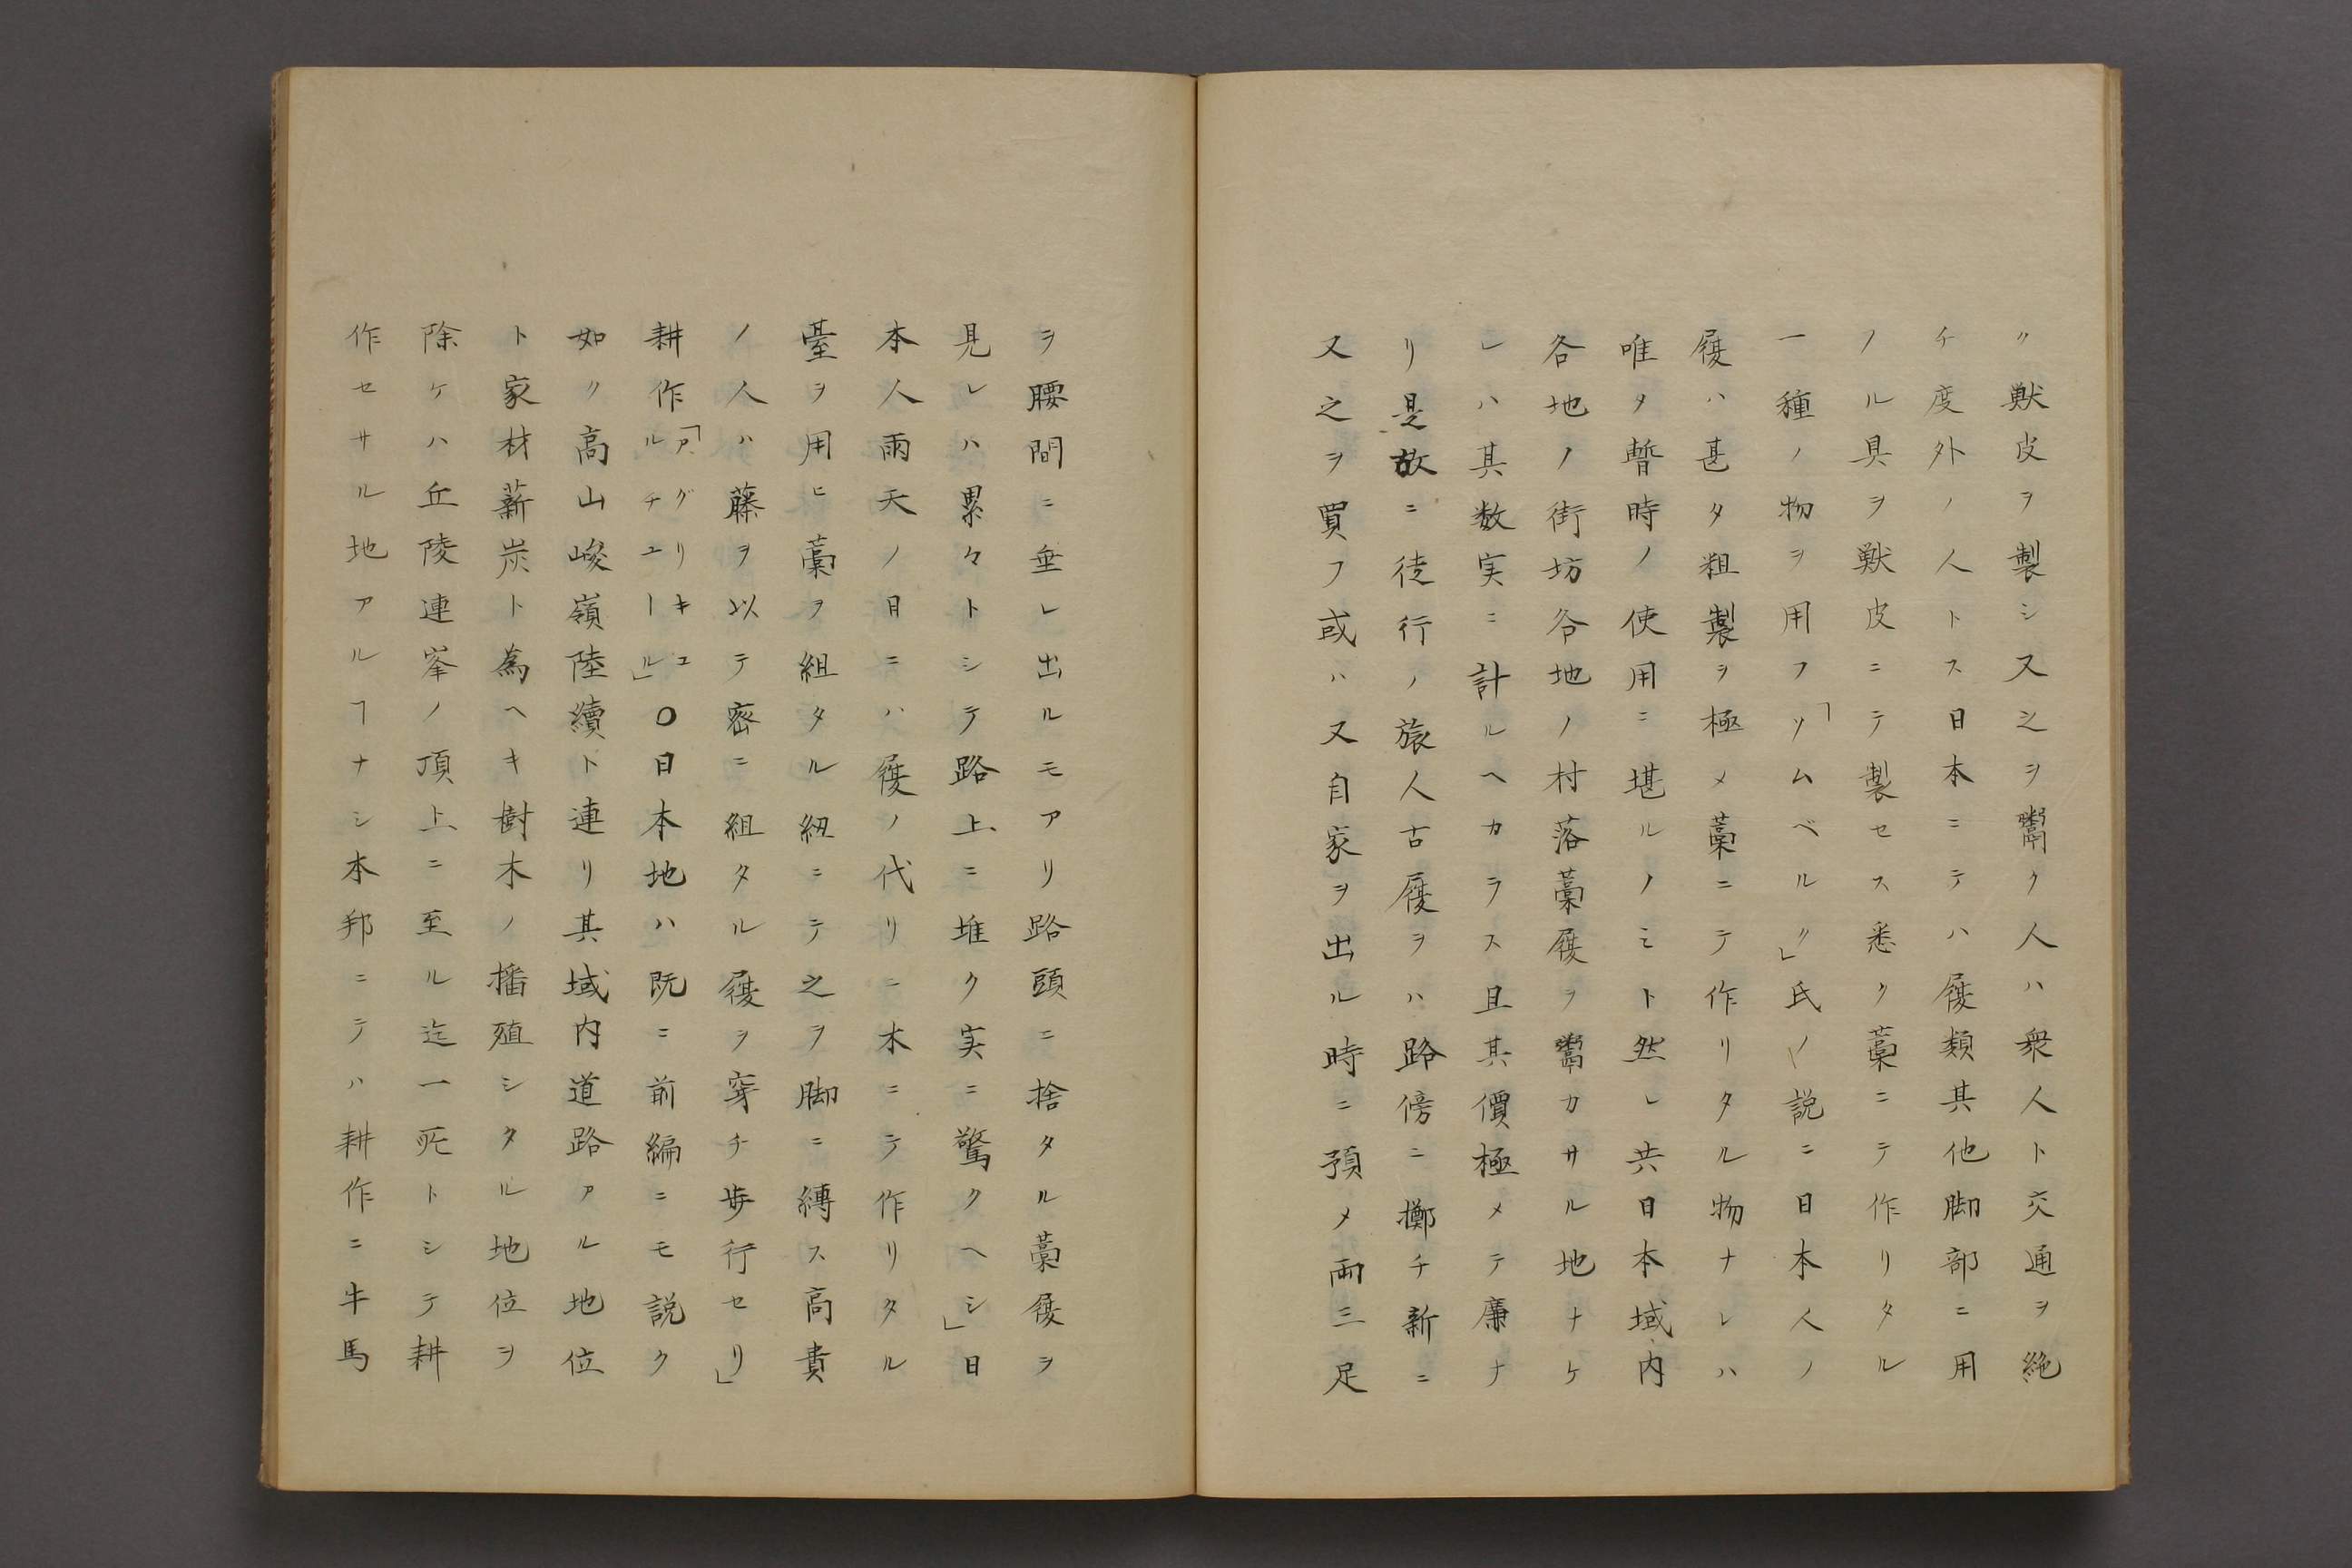 ク獣皮ヲ製シ又之ヲ鬻ク人ハ衆人ト交通ヲ絶
チ度外ノ人トス日本ニテハ屨類其他脚部ニ用
ノル具ヲ獣皮ニテ製セス悉ク藁ニテ作リタル
一種ノ物ヲ用フ「ソムベルク」氏ノ説ニ日本人ノ
屨ハ甚タ粗製ヲ極メ藁ニテ作リタル物ナレハ
唯タ暫時ノ使用ニ堪ルノミト然レ共日本域内
各地ノ街坊各地ノ村落藁屨ヲ鬻カサル地ナケ
レハ其数実ニ計ルヘカラス且其價極メテ廉ナ
リ是故ニ徒行ノ旅人古屨ヲハ路傍ニ擲チ新ニ
又之ヲ買フ或ハ又自家ヲ出ル時ニ預メ両三足
ヲ腰間ニ垂レ出ルモアリ路頭ニ捨タル藁屨ヲ
見レハ累々トシテ路上ニ堆ク実ニ驚クヘシ」日
本人雨天ノ日ニハ屨ノ代リニ木ニテ作リタル
臺ヲ用ヒ藁ヲ組タル紐ニテ之ヲ脚ニ縛ス高貴
ノ人ハ藤ヲ以テ密ニ組タル屨ヲ穿チ歩行セリ」
耕作「アグリキュルチュール」〇日本地ハ既ニ前編ニモ説ク
如ク高山峻嶺陸續ト連リ其域内道路アル地位
ト家材薪炭ト為ヘキ樹木ノ播殖シタル地位ヲ
除ケハ丘陵連峯ノ頂上ニ至ル迄一死トシテ耕
作セサル地アルヿナシ本邦ニテハ耕作ニ牛馬